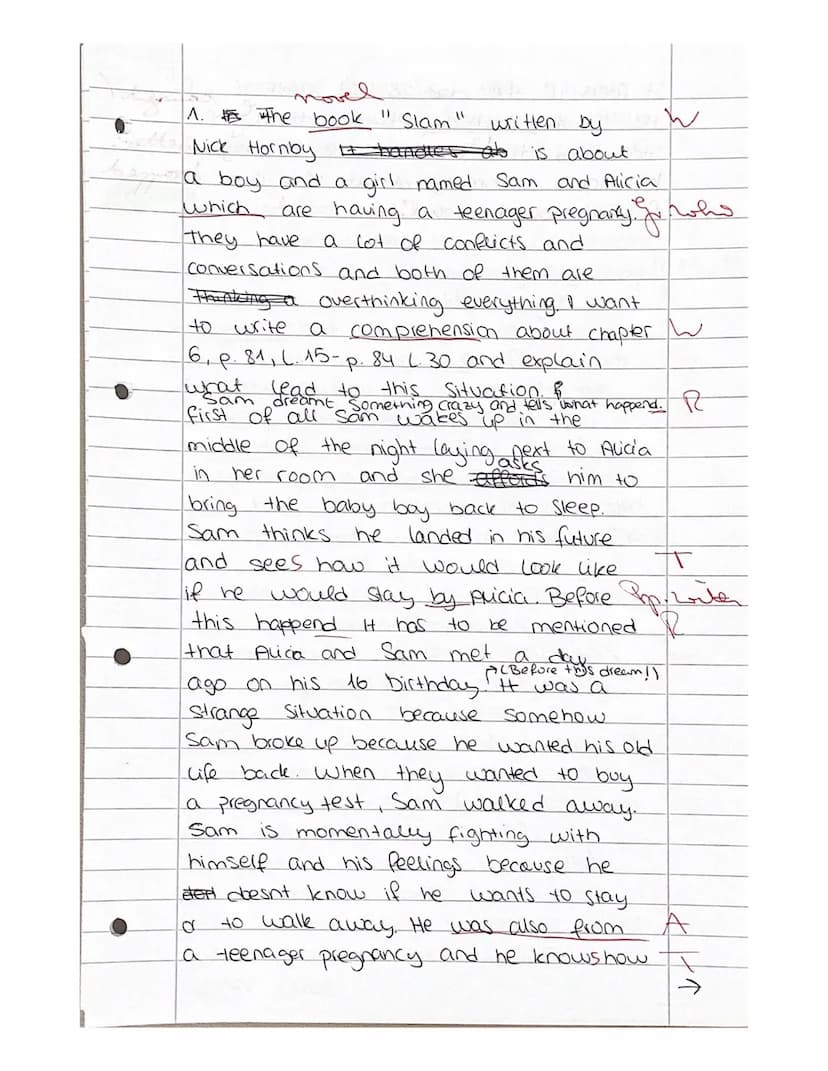 novel
1. The book "Slam" written by W
Nick Hornby It handles ab is about
a boy and a girl named Sam and Alicia
which are having a teenager pregnanty. G. who
They have a lot of conflicts and
conversations and both of them are
Thinking a overthinking everything. I want
to write a comprehension about chapter W
6, p. 81, L. 15- p. 84 L. 30 and explain
what lead to this situation.
Sam dreamt something crazy and tells what happend. R
first of all Sam wakes up in the
middle of the night laying next to Alicia
asks
in her room and she affords him to
bring the baby boy back to sleep.
Sam thinks he landed in his future
and sees how it would look like T
if he would stay by Alicia. Before Pp. with
this happend it has to be mentioned R
that Alica and Sam met a day
(Before this dream!)
ago on his 16 birthday. It was a
strange situation because somehow
Sam broke up because he wanted his old
life back. When they wanted to buy
a pregnancy test, Sam walked away.
Sam is momentally fighting with
himself and his feelings because he
doesnt know if he wants to stay
or to walk away. He was also from A
a teenager pregnancy and he knows how T
→